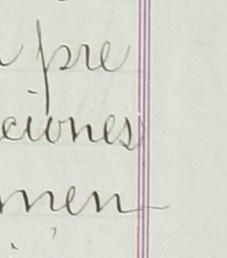 pre
ciones
men